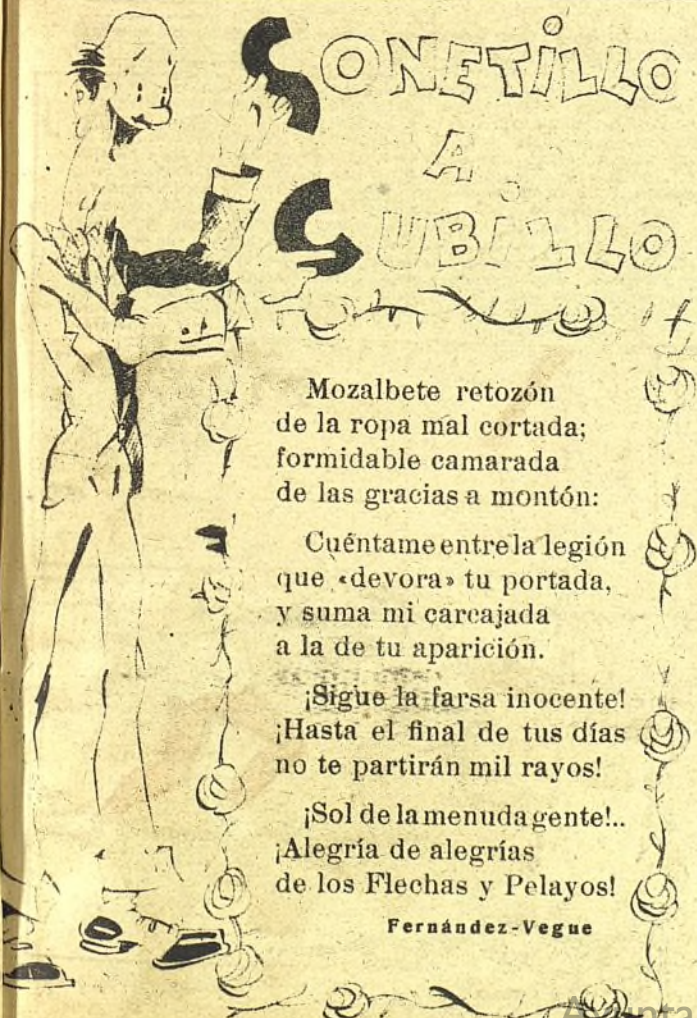 SONETILLO
A
CUBILLO
Mozalbete retozón
de la ropa mal cortada;
formidable camarada
de las gracias a montón:
Cuéntame entre la legión
que «devora» tu portada,
y suma mi carcajada
a la de tu aparición.
¡Sigue la farsa inocente!
¡Hasta el final de tus días
no te partirán mil rayos!
¡Sol de la menuda gente!..
¡Alegría de alegrías
de los Flechas y Pelayos!
Fernández-Vegue